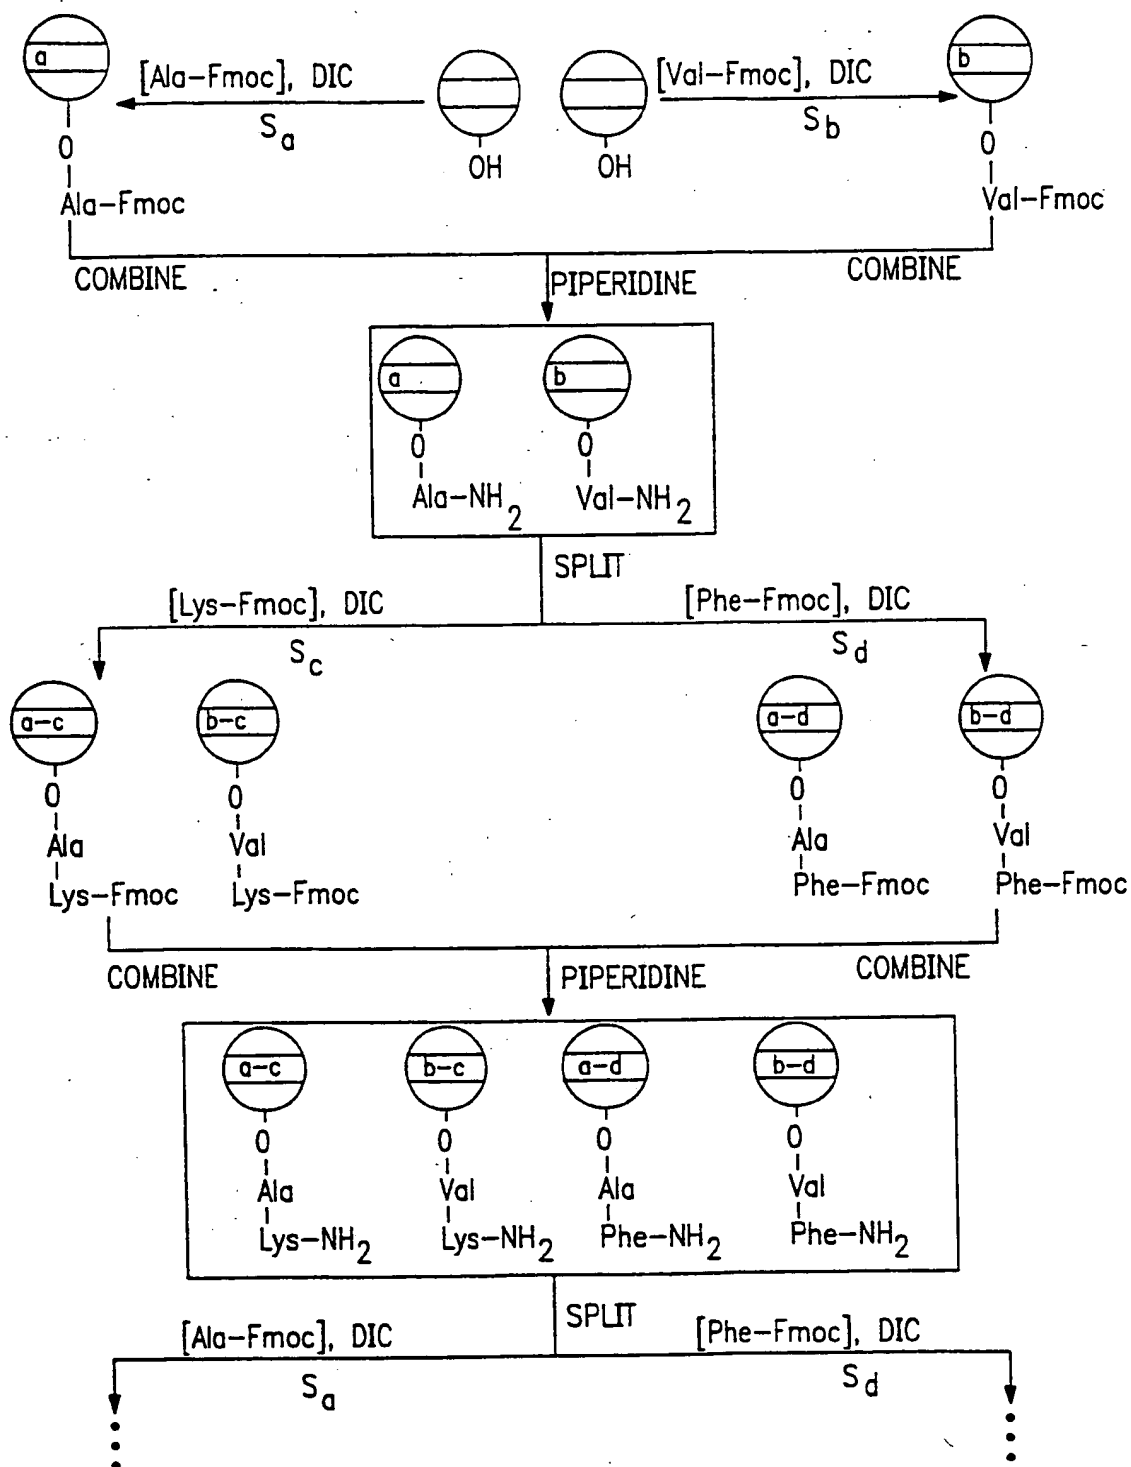 a
[Ala-Fmoc], DIC
Sa
OH
OH
[Val-Fmoc], DIC
Sb
b
O
Ala-Fmoc
O
Val-Fmoc
COMBINE
PIPERIDINE
COMBINE
a
b
O
O
Ala-NH2
Val-NH2
SPLIT
[Lys-Fmoc], DIC
Sc
[Phe-Fmoc], DIC
Sd
a-c
b-c
a-d
b-d
O
O
O
O
Ala
Val
Ala
Val
Lys-Fmoc
Lys-Fmoc
Phe-Fmoc
Phe-Fmoc
COMBINE
PIPERIDINE
COMBINE
a-c
b-c
a-d
b-d
O
O
O
O
Ala
Val
Ala
Val
Lys-NH2
Lys-NH2
Phe-NH2
Phe-NH2
SPLIT
[Ala-Fmoc], DIC
Sa
[Phe-Fmoc], DIC
Sd